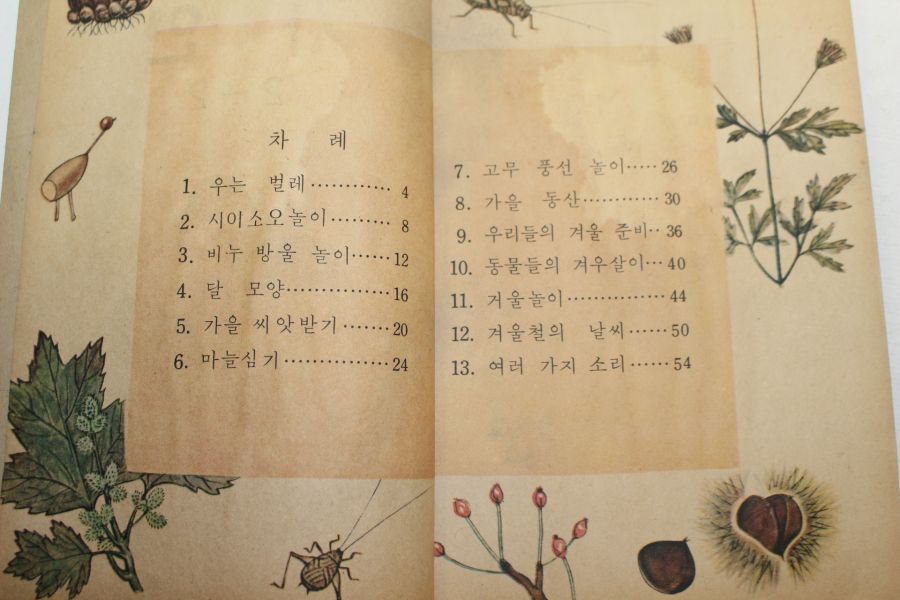 차 례
1. 우는 벌레 ············ 4
2. 시이소오놀이 ········· 8
3. 비누 방울 놀이 ······ 12
4. 달 모양 ··············· 16
5. 가을 씨앗받기 ······· 20
6. 마늘심기 ··············· 24
7. 고무 풍선 놀이 ····· 26
8. 가을 동산 ············ 30
9. 우리들의 겨울 준비 ·· 36
10. 동물들의 겨우살이 ··· 40
11. 거울놀이 ·············· 44
12. 겨울철의 날씨 ······ 50
13. 여러 가지 소리 ······ 54